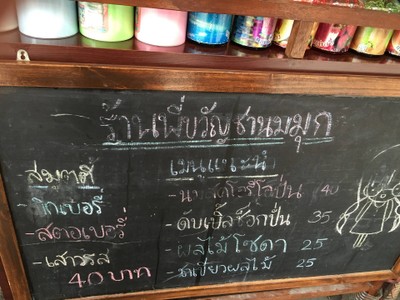 ร้านพี่ขวัญชานมมุก
สมูตตี้
- มิกเบอรี่
- สตอเบอรี่
- เสาวรส
40 บาท
เมนูแนะนำ
- นมสดโอรีโอปั่น 40
- ดับเบิ้ลช็อกปั่น 35
- ผลไม้โซดา 25
- ชาเขียวผลไม้ 25